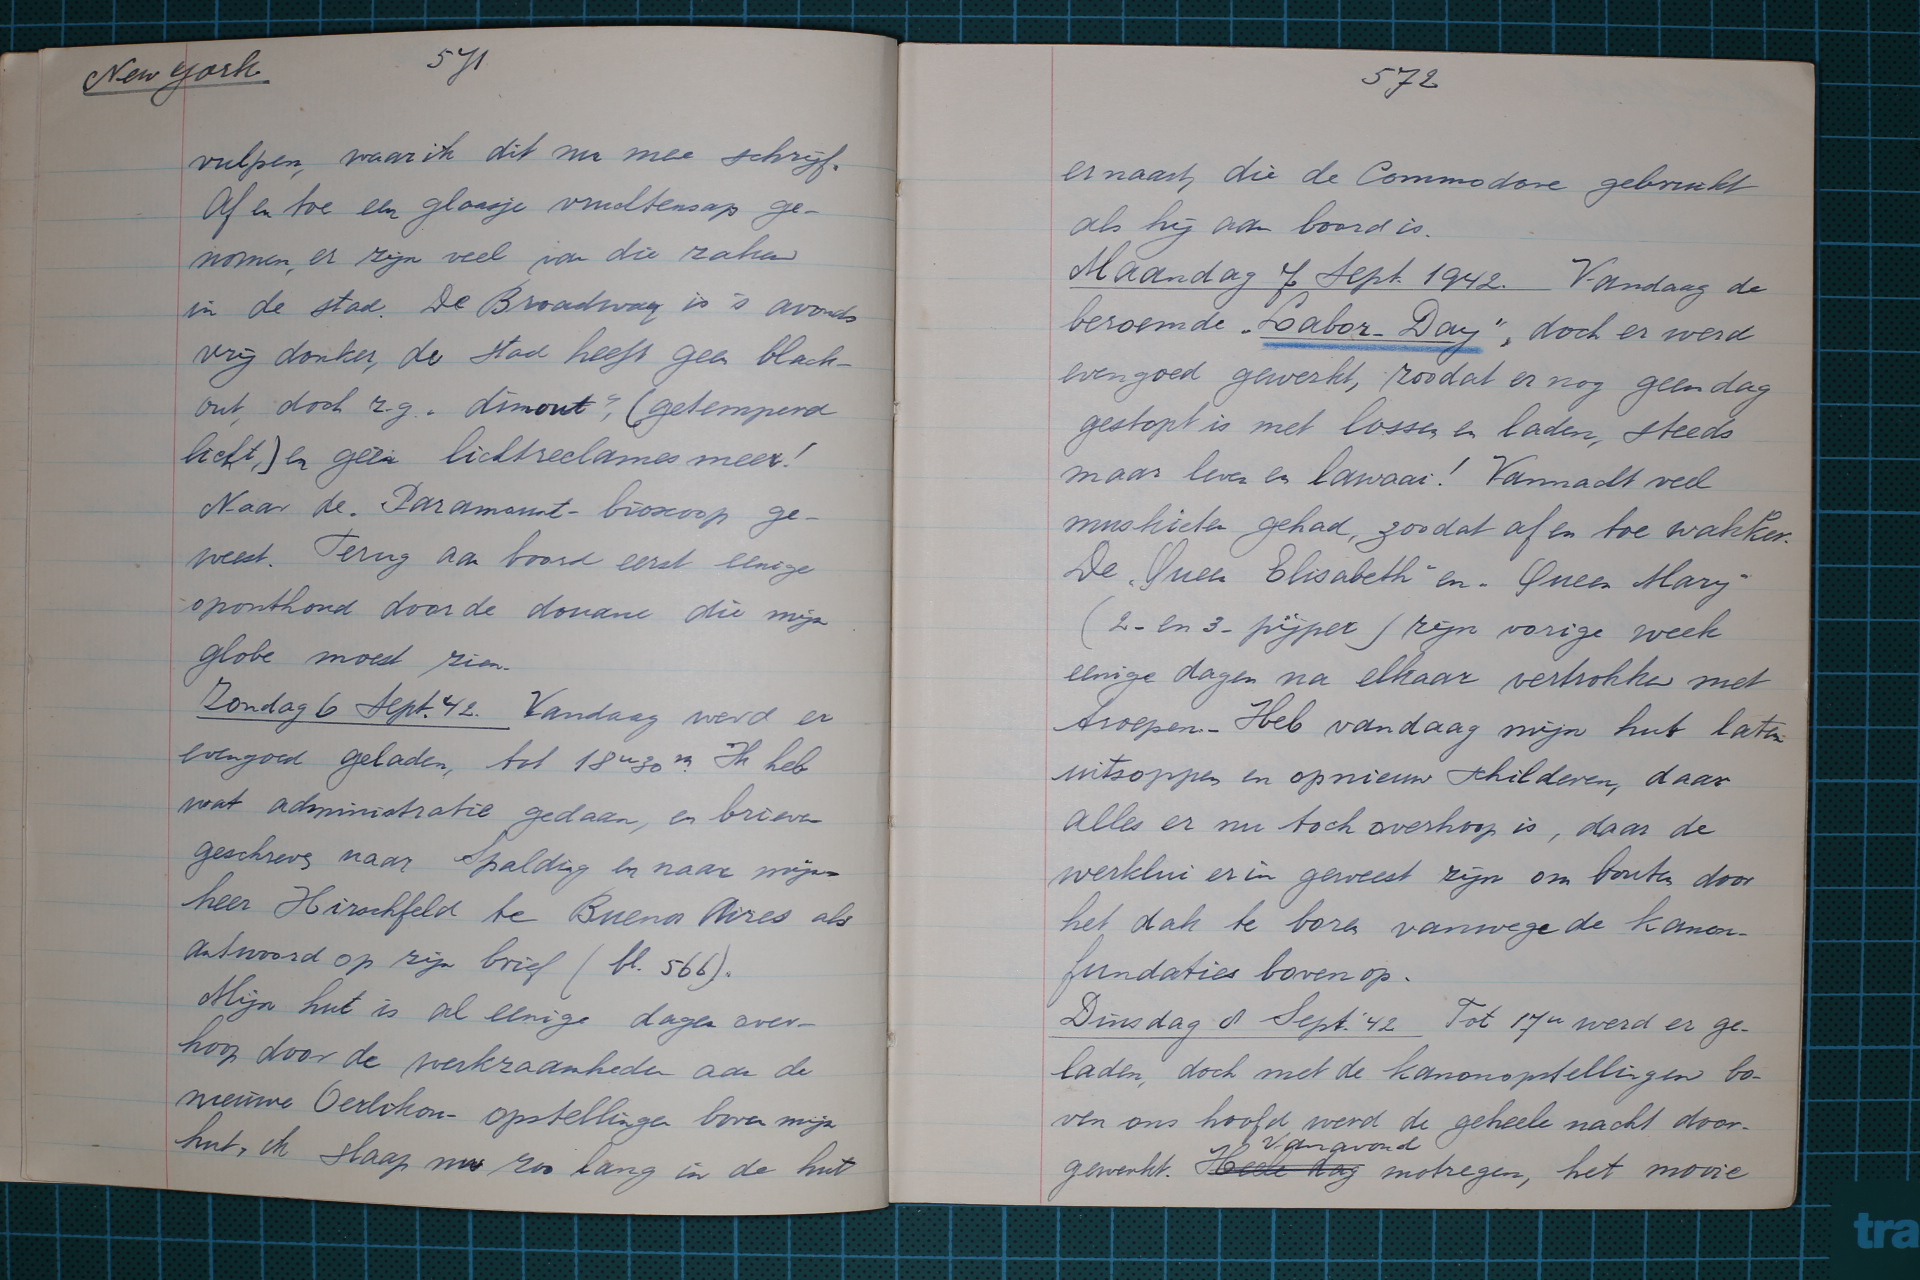 New York
571
vulpen, waar ik dit nu mee schrijf.
Af en toe een glaasje vruchtensap ge-
nomen, er zijn veel van die zaken
in de stad. De Broadway is 's avonds
vrij donker, de stad heeft geen black-
out, doch z.g. "dimout", (getemperd
licht,) en géén lichtreclames meer!
Naar de "Paramount- bioscoop ge-
weest. Terug aan boord eerst eenige
oponthoud door de douane die mijn
globe moest zien.
Zondag 6 Sept. '42. Vandaag werd er
evengoed geladen, tot 18u30m. Ik heb
wat administratie gedaan, en brieven
geschreven naar Spalding en naar mijn-
heer Hirschfeld te Buenos Aires als
antwoord op zijn brief (bl. 566).
Mijn hut is al eenige dagen over-
hoop door de werkzaamheden aan de
nieuwe Oerlikon- opstellingen boven mijn
hut, ik slaap nu zoo lang in de hut
572
ernaast, die de Commodore gebruikt
als hij aan boord is.
Maandag 7 Sept. 1942. Vandaag de
beroemde "Labor- Day", doch er werd
evengoed gewerkt, zoodat er nog geen dag
gestopt is met lossen en laden, steeds
maar leven en lawaai! Vannacht veel
muskieten gehad, zoodat af en toe wakker.
De "Queen Elisabeth" en "Queen Mary"
(2- en 3- pijper) zijn vorige week
eenige dagen na elkaar vertrokken met
troepen.- Heb vandaag mijn hut laten
uitsoppen en opnieuw schilderen, daar
alles er nu toch overhoop is, daar de
werklui erin geweest zijn om bouten door
het dak te boren vanwege de kanon-
fundaties bovenop.
Dinsdag 8 Sept. '42 Tot 17u werd er ge-
laden, doch met de kanonopstellingen bo-
ven ons hoofd werd de geheele nacht door-
Vanavond
gewerkt. Heele dag motregen, het mooie